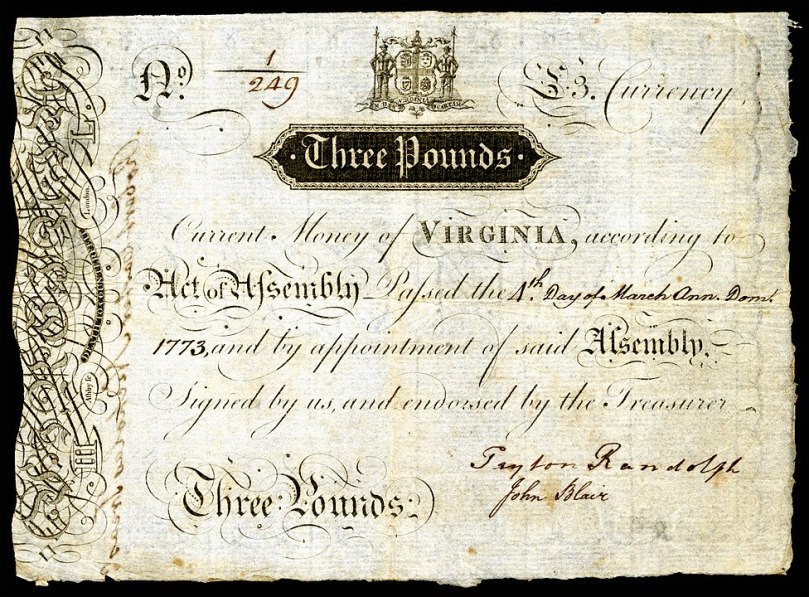 No. 1/249 £3. Currency.
EN DAT VIRGINIA QUARTAM
·Three Pounds·
Current Money of VIRGINIA, according to
Act of Assembly Passed the 4th. Day of March Ann. Dom.
1773, and by appointment of said Assembly.
Signed by us, and endorsed by the Treasurer
Peyton Randolph
John Blair
Three Pounds:
London
Ashby fc.